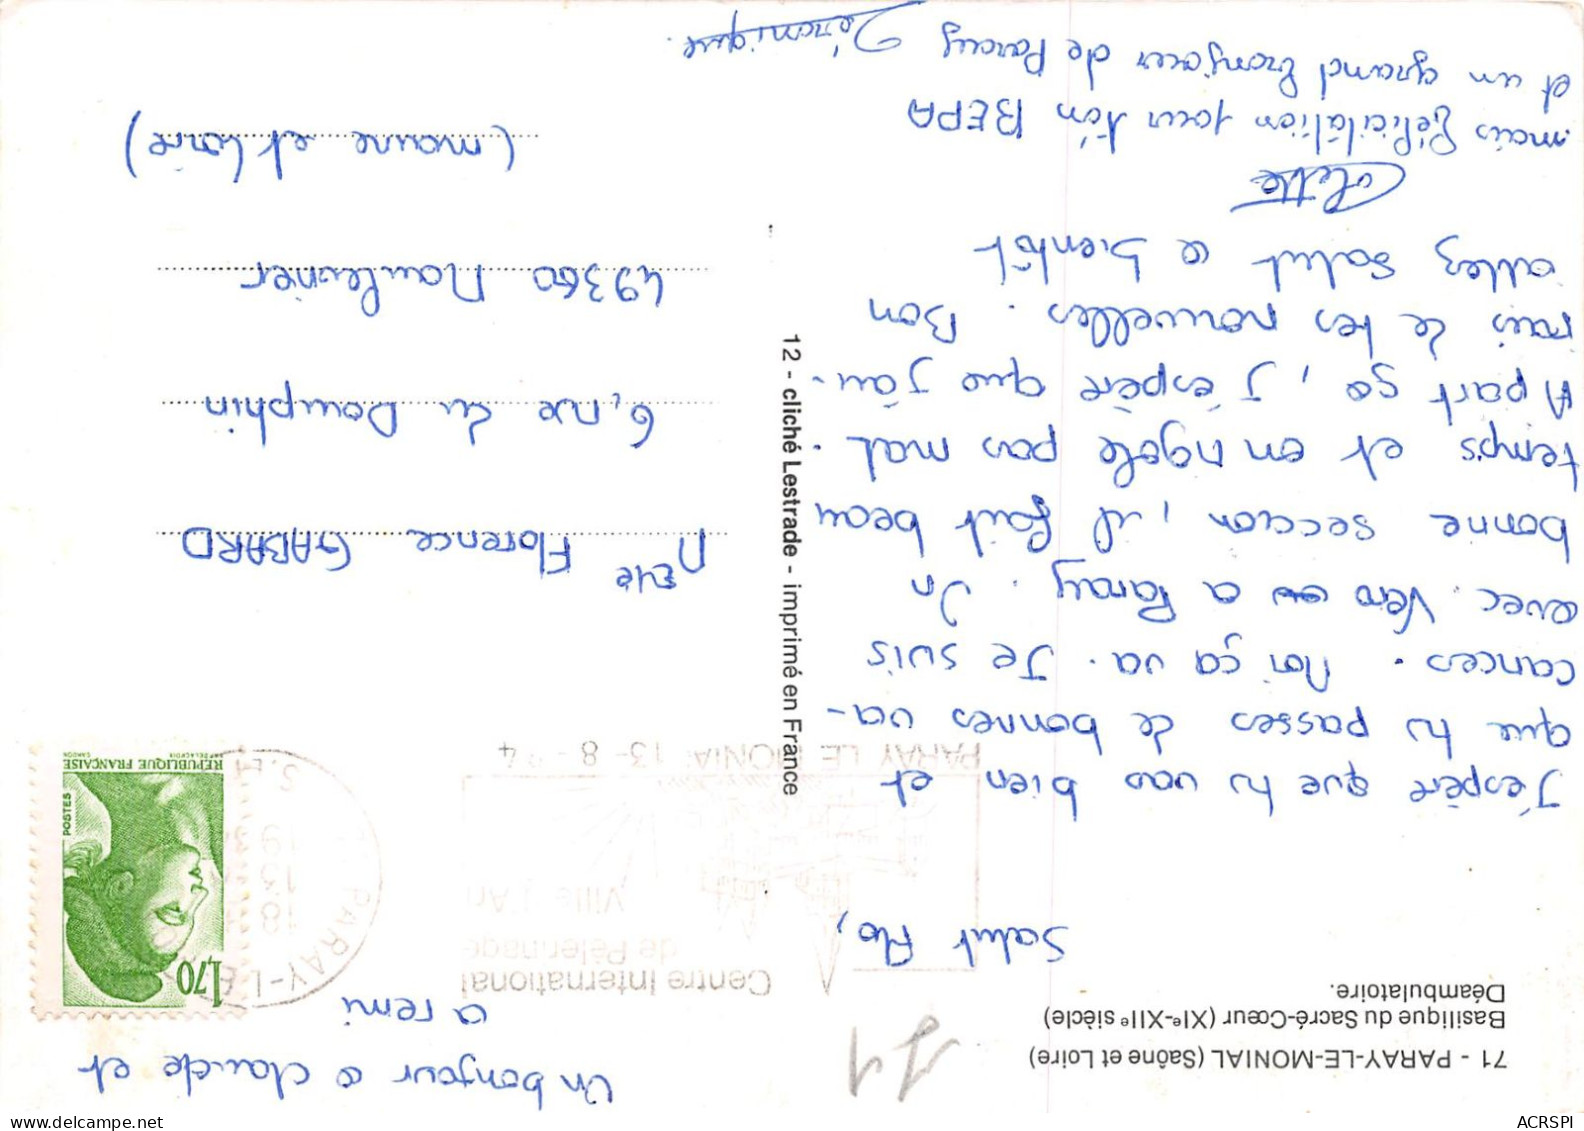 71 - PARAY-LE-MONIAL (Saône et Loire)
Basilique du Sacré-Cœur (XIe-XIIe siècle)
Déambulatoire.
Un bonjour a claude et
a remi
Salut Flo,
J'espère que tu vas bien et
que tu passes de bonnes va-
cances. Moi ça va. Je suis
avec Véro a Paray. On
bonne section, il fait beau
temps et on rigole pas mal.
A part ça, j'espère que j'au-
rais de tes nouvelles. Bon
allez salut a bientôt
Colette
mais félicitâtion pour t'on BEPA
et un grand bonjour de Paray Véronique.
Melle Florence GABARD
6, rue du Dauphin
49360 Maulevrier
(maine et Loire)
12 - cliché Lestrade - imprimé en France
Centre International
de Pèlerinage
Ville d'Art
PARAY LE MONIAL 13-8-84
PARAY-LE
18 H
13
19
S.&L.
1,70
POSTES
RÉPUBLIQUE FRANÇAISE
GANDON
11
ACRSPI